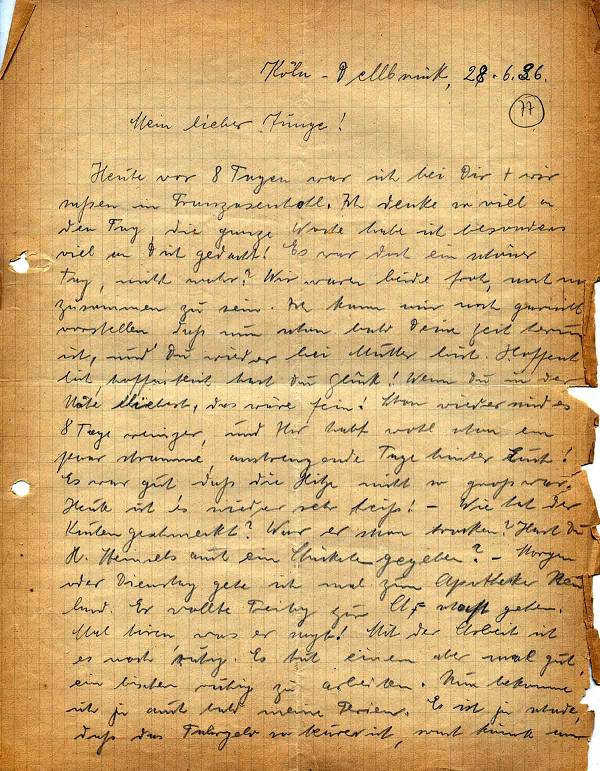 Köln - Dellbrück, 28.6.36.
77
Mein lieber Junge!
Heute vor 8 Tagen war ich bei Dir + wir
saßen in Franzosenholl. Ich denke so viel an
den Tag die ganze Woche habe ich besonders
viel an Dich gedacht! Es war doch ein schöner
Tag, nicht wahr? Wir waren beide froh, noch
zusammen zu sein. Ich kann mir noch gar nicht
vorstellen daß nun schon bald Deine Zeit herum
ist, und Du wieder bei Mutter bist. Hoffent
lich, hoffentlich hast Du Glück! Wenn Du in der
Nähe bliebest, das wäre fein! Schon wieder sind es
8 Tage weniger, und Ihr habt wohl schon ein
paar stramme, anstrengende Tage hinter Euch!
Es war gut daß die Hitze nicht so groß war.
Heute ist es wieder sehr heiß! - Wie hat der
Kuchen geschmeckt? War er schon trocken? Hast Du
H. auch ein Stückchen gegeben? - Morgen
oder Dienstag gehe ich mal zum Apotheker
land. Er wollte Freitag zur gehen.
Mal hören was er sagt! Mit der Arbeit ist
es noch ruhig. Es tut einem aber mal gut,
ein bischen ruhig zu arbeiten. Nun bekomme
ich ja auch bald meine Ferien. Es ist ja schade,
daß das Fahrgeld so teuer ist, sonst könnte